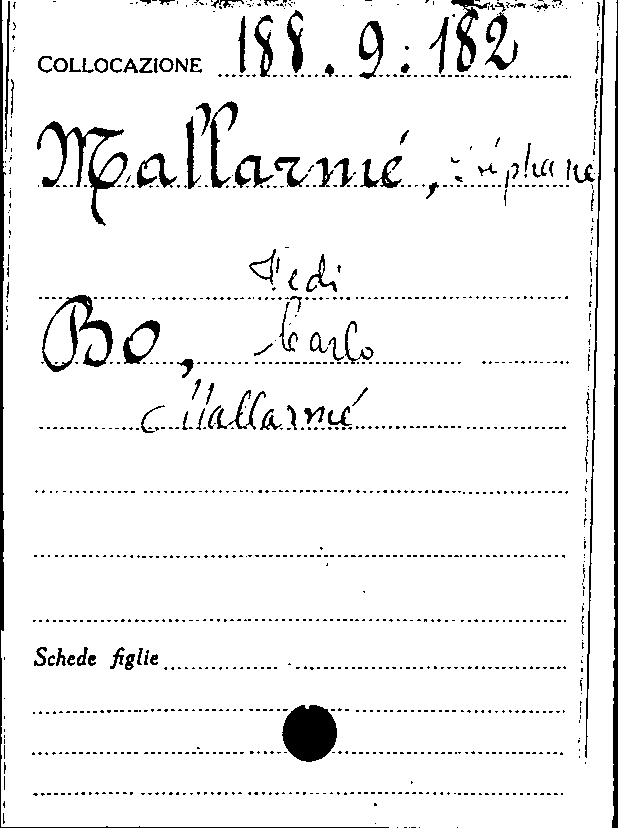 COLLOCAZIONE 188.9:182
Mallarmé, Stéphane
Vedi
Bo, Carlo
Mallarmé
Schede figlie